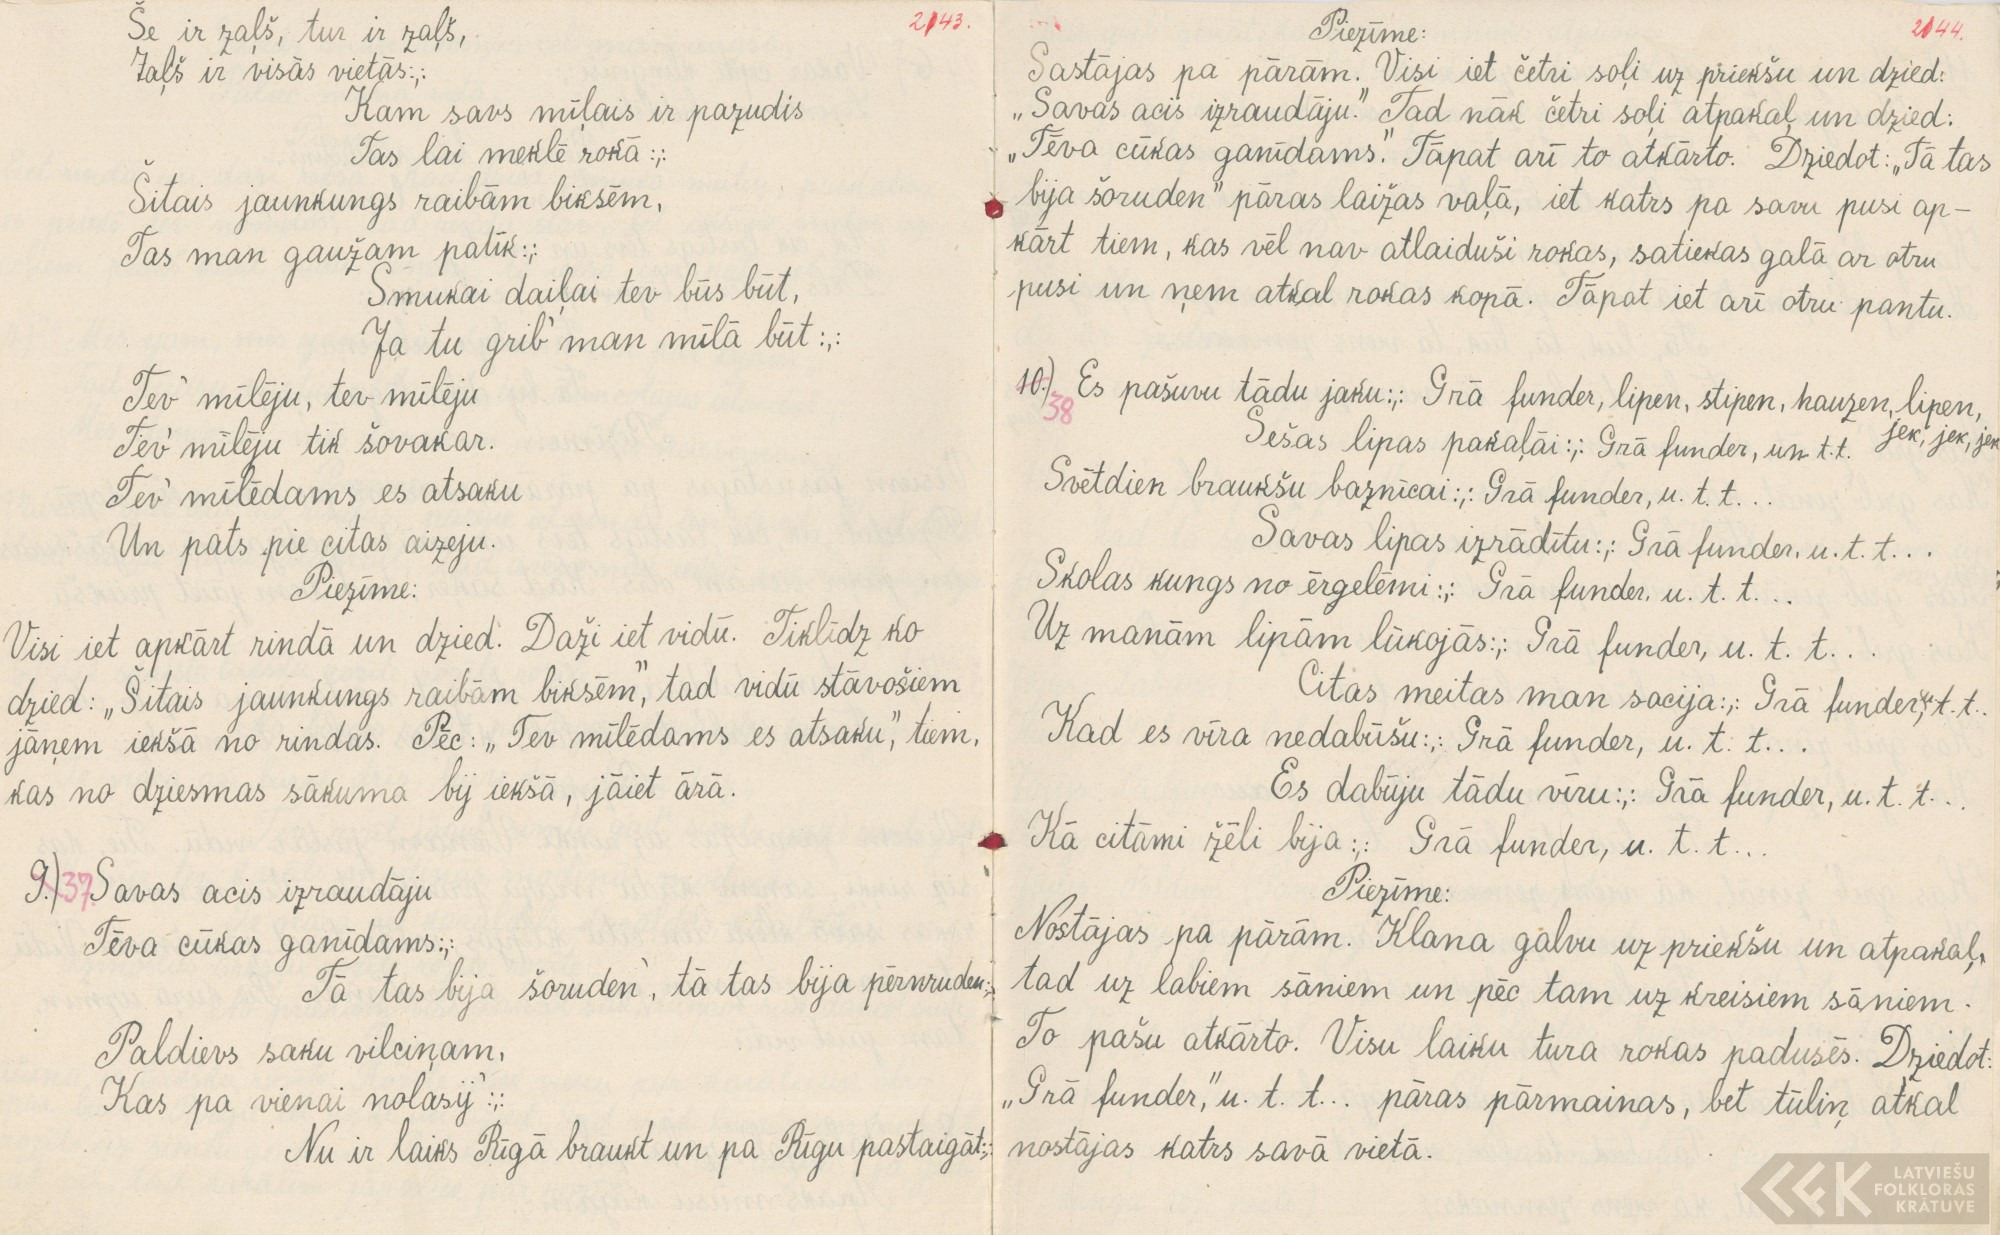 2143.
Še ir zaļš, tur ir zaļš,
Zaļš ir visās vietās:,:
Kam savs mīļais ir pazudis
Tas lai meklē rokā:,:
Šitais jaunkungs raibām biksēm,
Tas man gaužam patīk:,:
Smukai daiļai tev būs būt,
Ja tu grib' man mīlā būt:,:
Tev' mīlēju, tev mīlēju
Tev' mīlēju tik šovakar.
Tev' mīlēdams es atsaku
Un pats pie citas aizeju.
Piezīme:
Visi iet apkārt rindā un dzied. Daži iet vidū. Tiklīdz ko
dzied: „Šitais jaunkungs raibām biksēm", tad vidū stāvošiem
jāņem iekšā no rindas. Pēc: „Tev mīlēdams es atsaku", tiem,
kas no dziesmas sākuma bij iekšā, jāiet ārā.
9.) 37. Savas acis izraudāju
Tēva cūkas ganīdams:,:
Tā tas bija šoruden', tā tas bija pērnruden:,:
Paldievs saku vilciņam,
Kas pa vienai nolasīj':,:
Nu ir laiks Rīgā braukt un pa Rīgu pastaigāt:,:
2144.
Piezīme:
Sastājas pa pārām. Visi iet četri soļi uz priekšu un dzied:
„Savas acis izraudāju." Tad nāk četri soļi atpakaļ un dzied:
„Tēva cūkas ganīdams." Tāpat arī to atkārto. Dziedot: „Tā tas
bija šoruden" pāras laižas vaļā, iet katrs pa savu pusi ap-
kārt tiem, kas vēl nav atlaiduši rokas, satiekas galā ar otru
pusi un ņem atkal rokas kopā. Tāpat iet arī otru pantu.
10.) 38 Es pašuvu tādu jaku:,: Grā funder, lipen, stipen, hauzen, lipen,
jek, jek, jek
Sešas lipas pakaļāi:,: Grā funder, un t.t.
Svētdien braukšu baznīcai:,: Grā funder, u. t. t...
Savas lipas izrādītu:,: Grā funder, u. t. t...
Skolas kungs no ērgelēmi:,: Grā funder, u. t. t...
Uz manām lipām lūkojās:,: Grā funder, u. t. t...
Citas meitas man sacija:,: Grā funder, u. t. t..
Kad es vīra nedabūšu:,: Grā funder, u. t. t...
Es dabūju tādu vīru:,: Grā funder, u. t. t...
Kā citāmi žēli bija:,: Grā funder, u. t. t...
Piezīme:
Nostājas pa pārām. Klana galvu uz priekšu un atpakaļ,
tad uz labiem sāniem un pēc tam uz kreisiem sāniem.
To pašu atkārto. Visu laiku tura rokas padusēs. Dziedot:
„Grā funder," u. t. t... pāras pārmainas, bet tūliņ atkal
nostājas katrs savā vietā.
LATVIEŠU
FOLKLORAS
KRĀTUVE